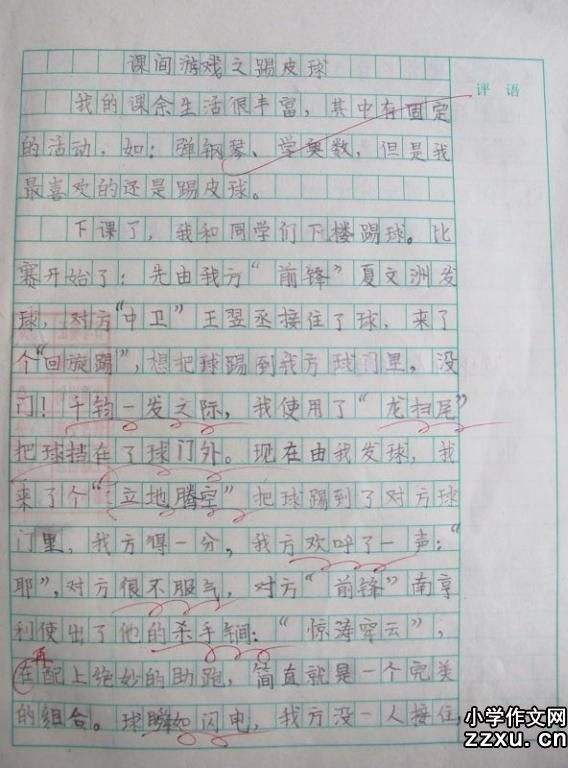 课间游戏之踢皮球
评语
我的课余生活很丰富，其中有固定
的活动．如：弹钢琴、学奥数，但是我
最喜欢的还是踢皮球。
下课了，我和同学们下楼踢球。比
赛开始了：先由我方“前锋”夏文洲发
球，对方“中卫”王翌丞接住了球，来了
个“回旋踢”，想把球踢到我方球门里，没
门！千钧一发之际，我使用了“龙扫尾”
把球挡在了球门外。现在由我发球，我
来了个“立地腾空”把球踢到了对方球
门里，我方得一分，我方欢呼了一声：“
耶”，对方很不服气，对方“前锋”南享
利使出了他的杀手锏：“惊涛穿云”，
在再配上绝妙的助跑，简直就是一个完美
的组合。球瞬如闪电，我方没一人接住，
小学作文网
zzxu.cn